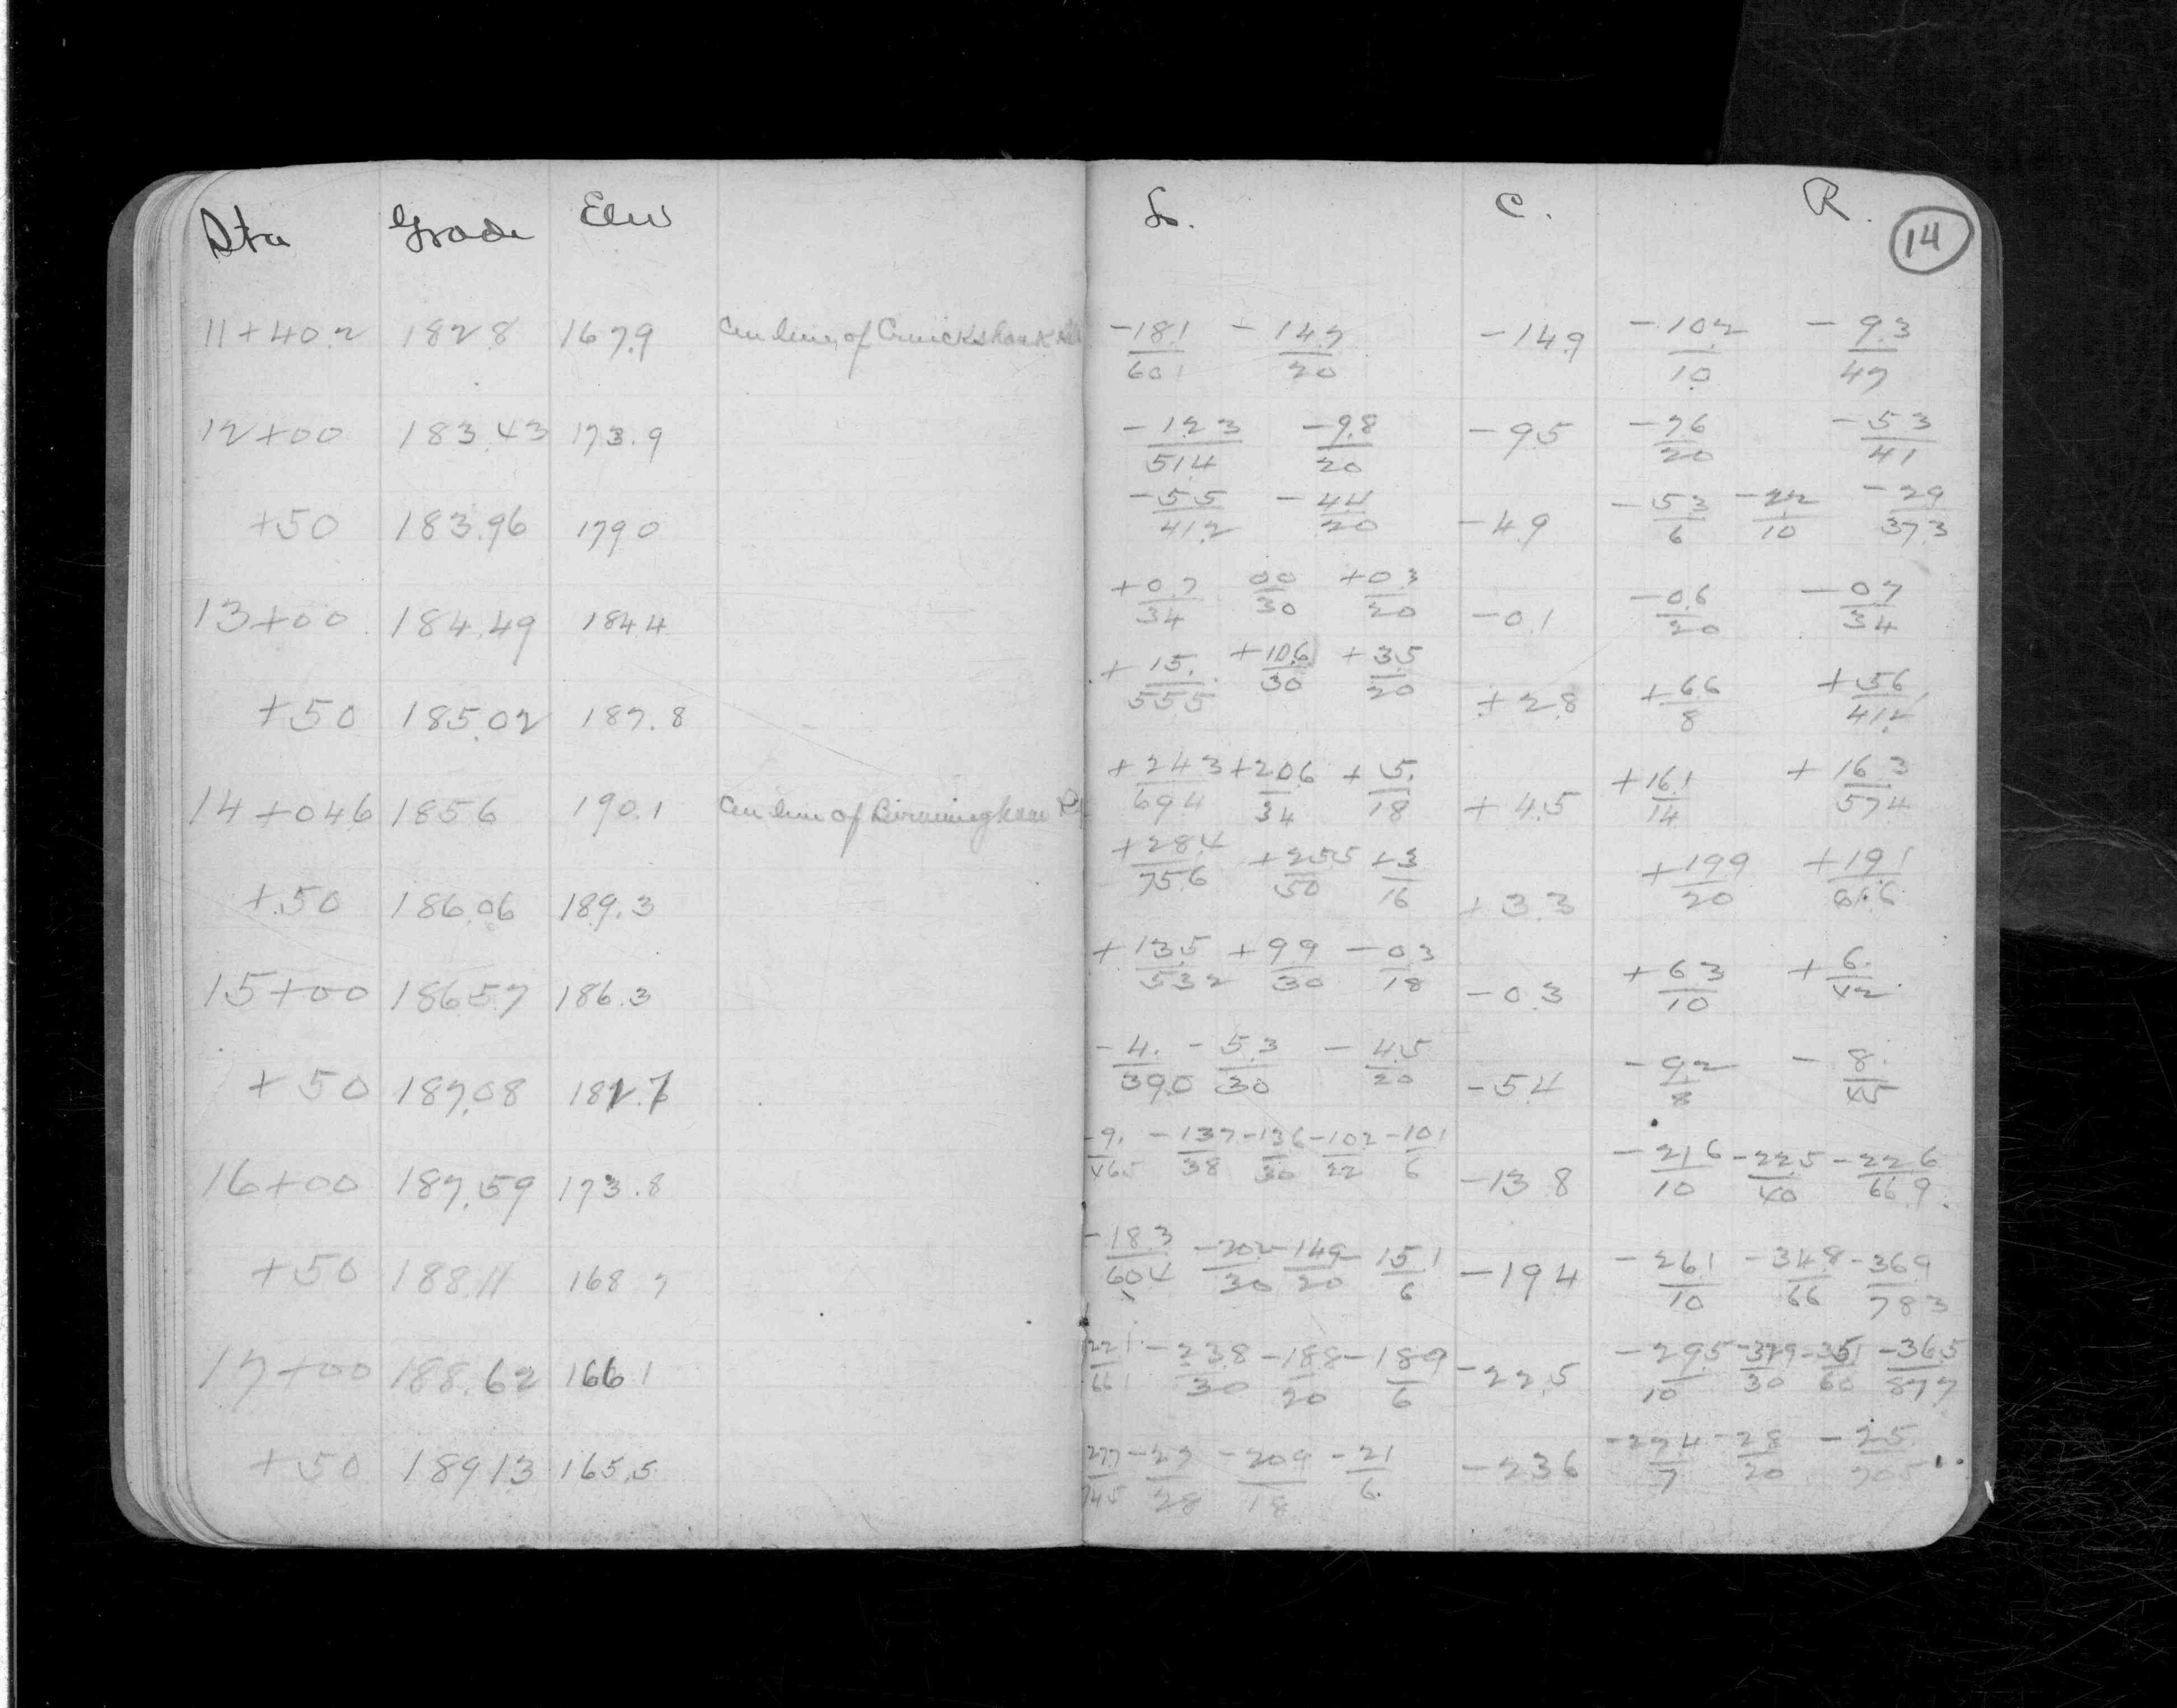 Sta Grade Elev L. C. R. 14
11+40.2 182.8 167.9 Cen line of Cruickshank -18.1/60.1 -14.7/20 -14.9 -10.2/10 -9.3/47
12+00 183.43 173.9 -12.3/51.4 -9.8/20 -9.5 -7.6/20 -5.3/41
+50 183.96 179.0 -5.5/41.2 -4.4/20 -4.9 -5.3/6 -2.2/10 -2.9/37.3
13+00 184.49 184.4 +0.7/34 00/30 +0.3/20 -0.1 -0.6/20 -0.7/34
+50 185.02 187.8 +15./55.5 +10.6/30 +3.5/20 +2.8 +6.6/8 +5.6/41.2
14+04.6 185.6 190.1 Cen line of Birmingham +24.3/69.4 +20.6/34 +5./18 +4.5 +16.1/14 +16.3/57.4
+50 186.06 189.3 +28.4/75.6 +25.5/50 +3/16 +3.3 +19.9/20 +19.1/61.6
15+00 186.57 186.3 +13.5/53.2 +9.9/30 -0.3/18 -0.3 +6.3/10 +6./42
+50 187.08 181.7 -4./39.0 -5.3/30 -4.5/20 -5.4 -9.2/8 -8./45
16+00 187.59 173.8 -9./46.5 -13.7/38 -13.6/30 -10.2/22 -10.1/6 -13.8 -21.6/10 -22.5/40 -22.6/66.9
+50 188.11 168.7 -18.3/60.4 -20.2/30 -14.9/20 15.1/6 -19.4 -26.1/10 -34.8/66 -36.9/78.3
17+00 188.62 166.1 22.1/66.1 -23.8/30 -18.8/20 -18.9/6 -22.5 -29.5/10 -32.9/30 -35.1/60 -36.5/87.7
+50 189.13 165.5 27.7/74.5 -27/28 -20.9/18 -21/6 -23.6 -27.4/7 -28/20 -25/70.5